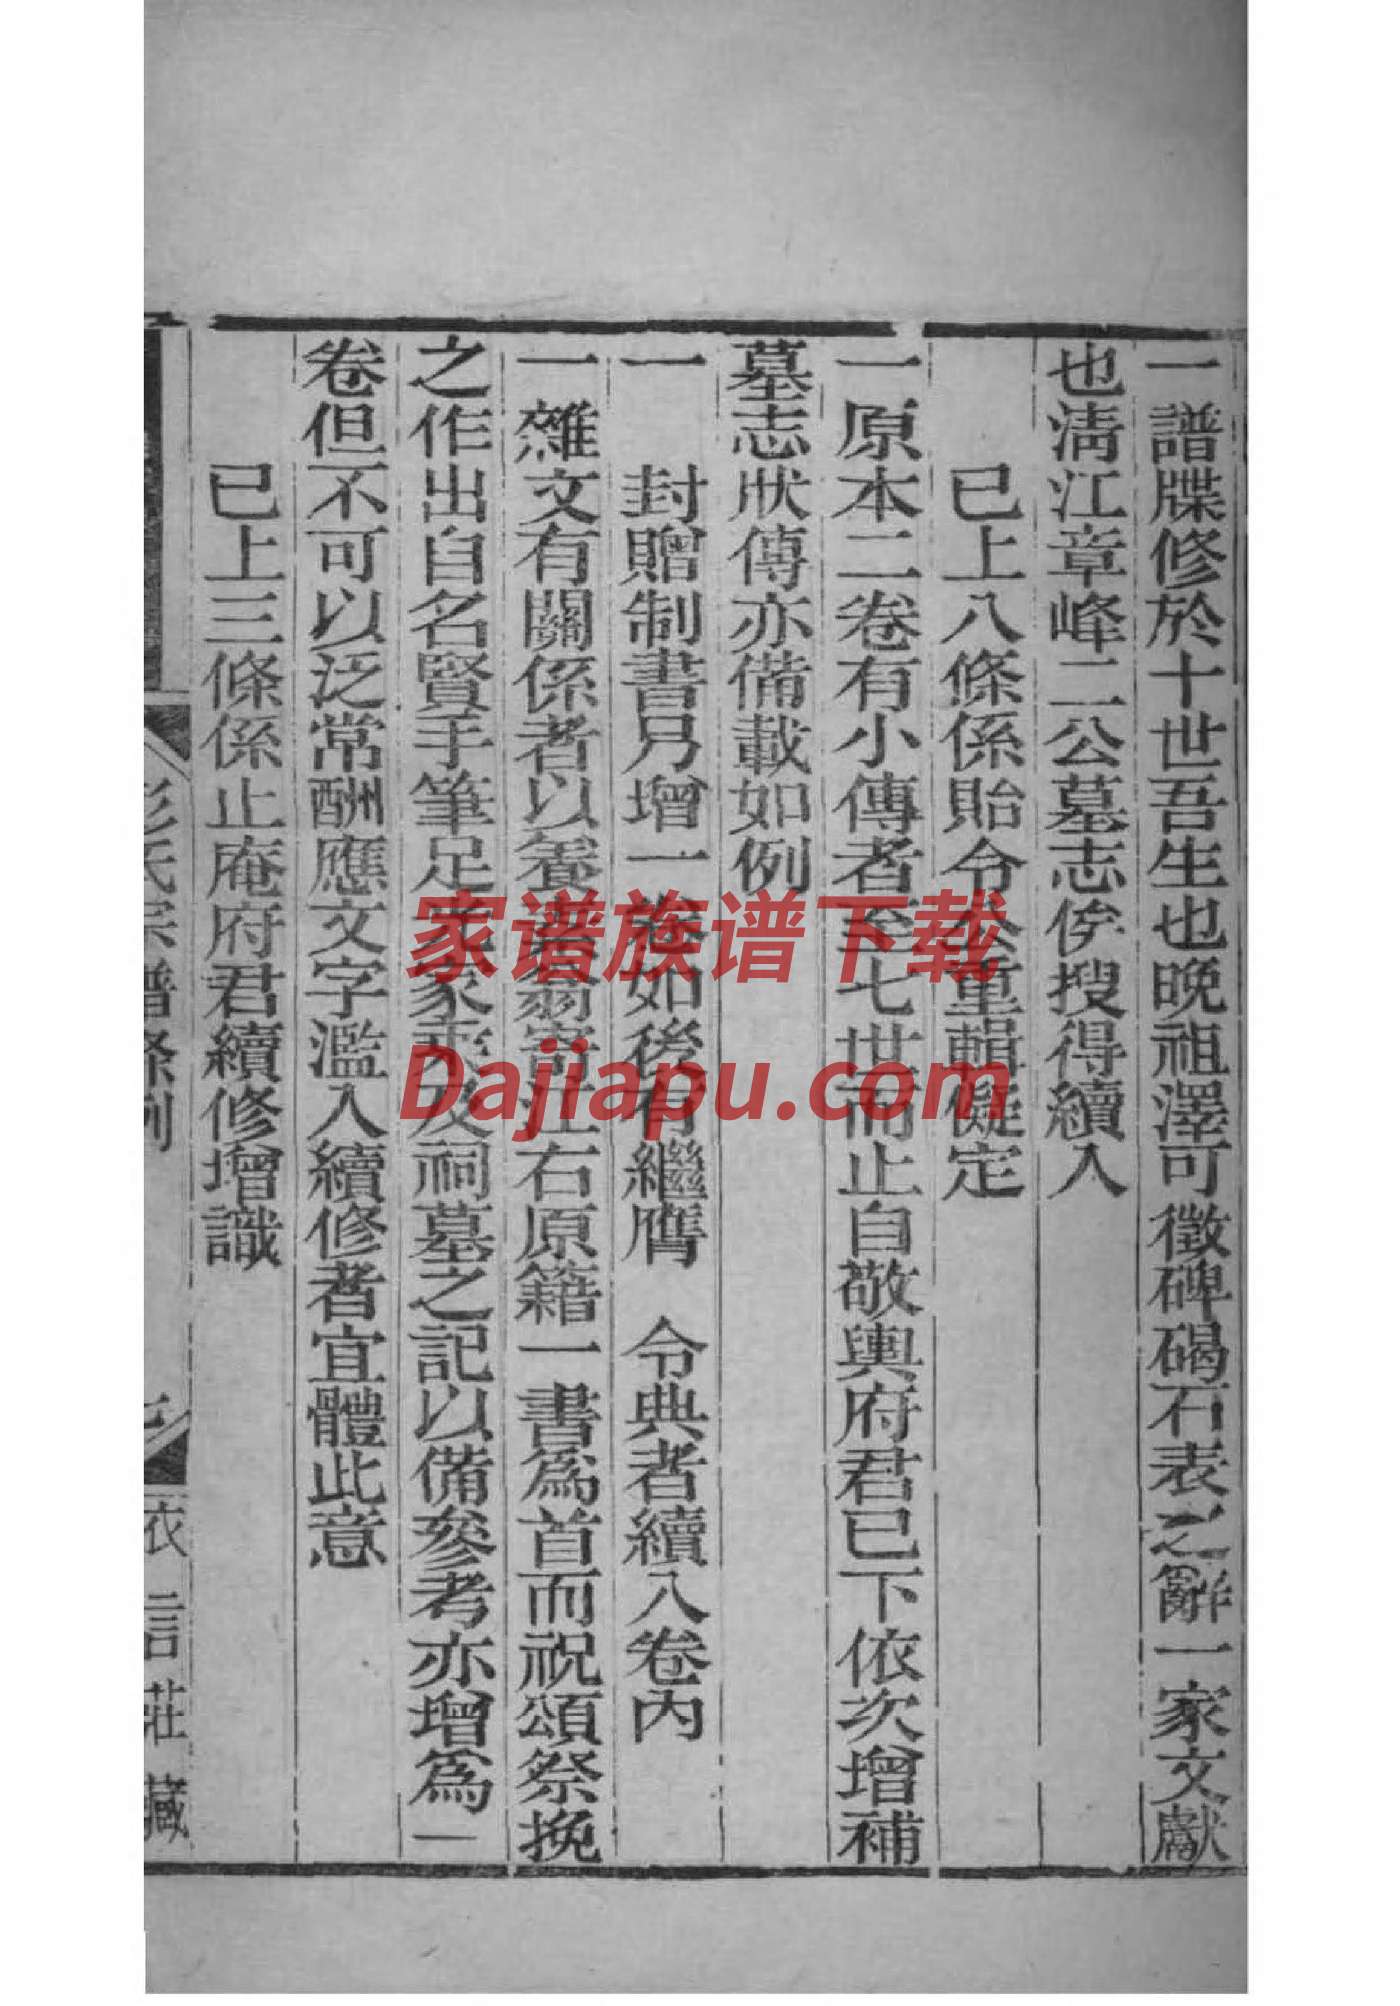 一譜牒修於十世吾生也晚祖澤可徵碑碣石表之辭一家文獻
也淸江章峰二公墓志俟搜得續入
已上八條係貽令公重輯儗定
一原本二卷有小傳者至七世而止自敬輿府君已下依次增補
墓志狀傳亦備載如例
一　封贈制書乃增一卷如後有繼膺　令典者續入卷內
一雜文有關係者以養翁寄江右原籍一書爲首而祝頌祭挽
之作出自名賢手筆足光家乘及祠墓之記以備參考亦增爲一
卷但不可以泛常酬應文字濫入續修者宜體此意
已上三條係止庵府君續修增識
彭氏宗譜條例
依言莊藏
家谱族谱下载
Dajiapu.com